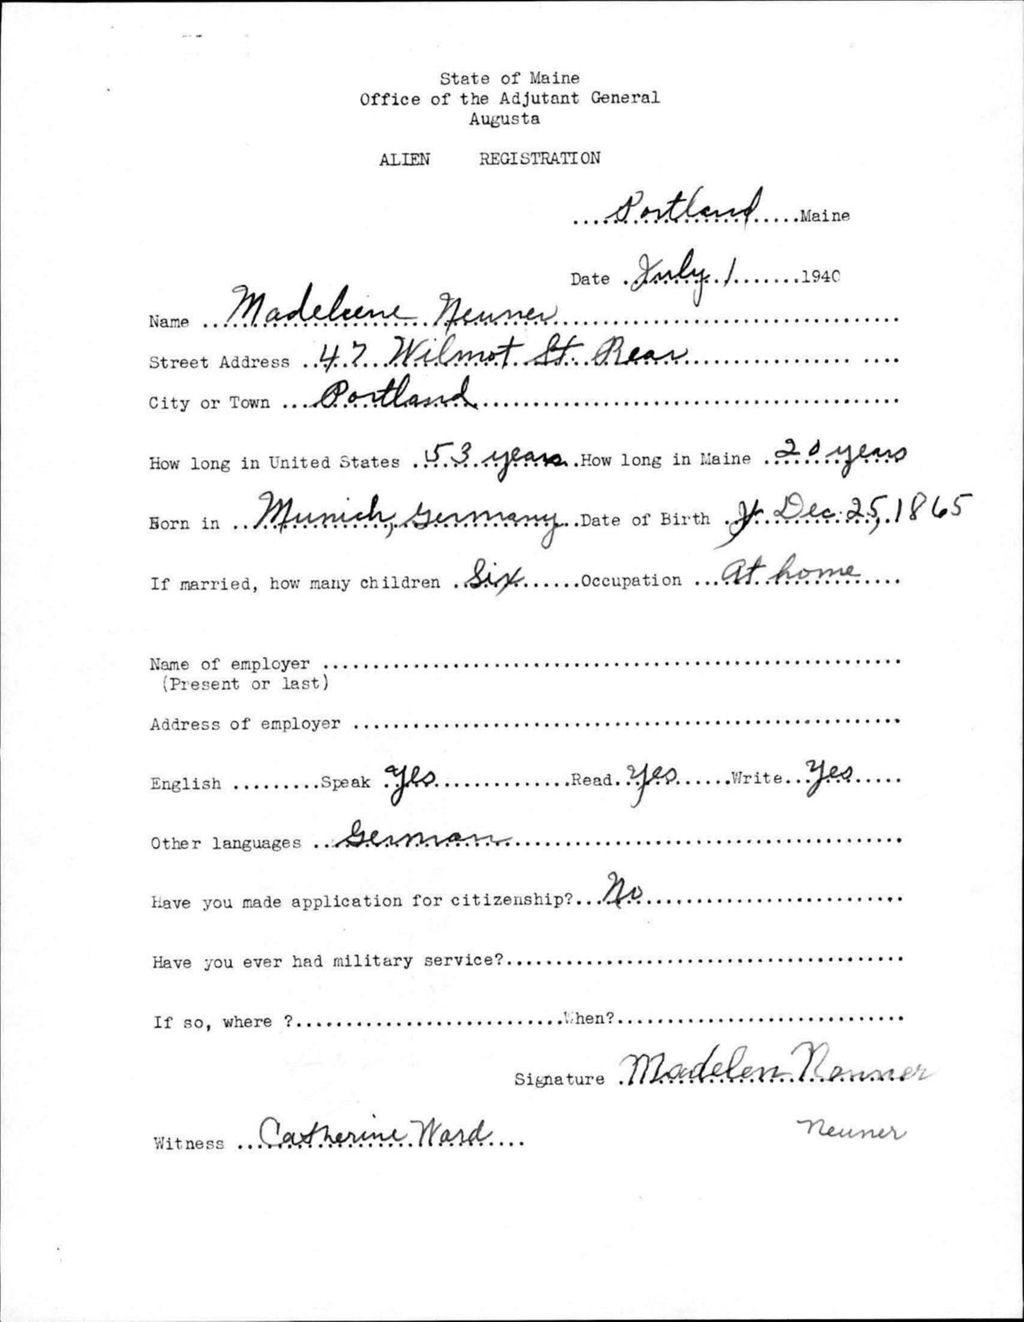 State of Maine
Office of the Adjutant General
Augusta
ALIEN REGISTRATION
....Portland.....Maine
Date .July 1.......1940
Name ..Madeleene Neuner..................................
Street Address ..47 Wilmot St. Rear.................. ....
City or Town ....Portland..................................
How long in United States .53 years.How long in Maine .20 years
Born in ..Munich, Germany..Date of Birth . Dec. 25, 1865
If married, how many children .Six......Occupation ...At home.....
Name of employer ..........................................................
(Present or last)
Address of employer .......................................................
English .........Speak .Yes.............Read.Yes......Write...Yes.....
Other languages ..German.......................................
Have you made application for citizenship?...No..........................
Have you ever had military service?........................................
If so, where ?...........................When?.............................
Signature .Madelen Neuner
Witness ..Catherine Ward....
Neuner